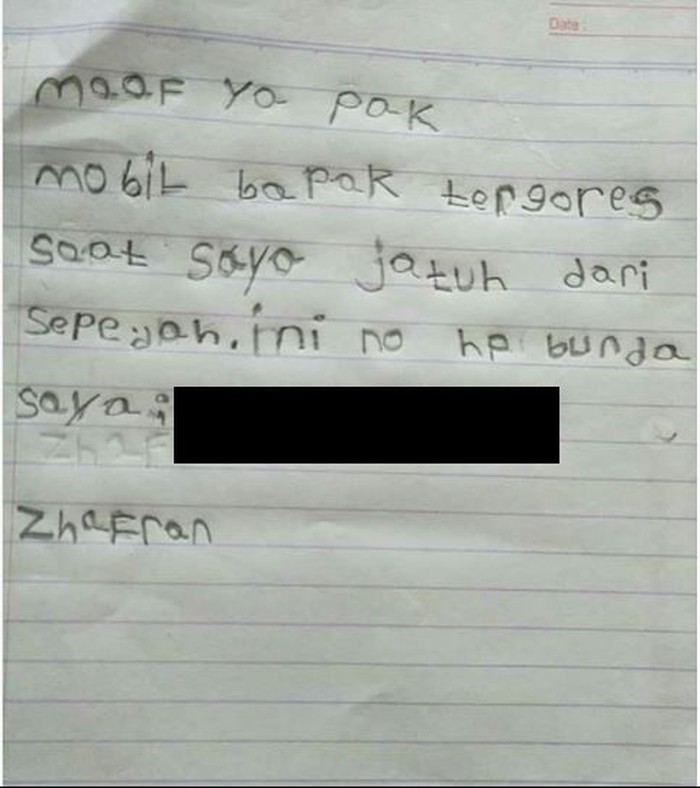 Date :
maaf ya pak
mobil bapak tergores
saat saya jatuh dari
sepedah. ini no hp bunda
saya :
Zhaf
Zhafran